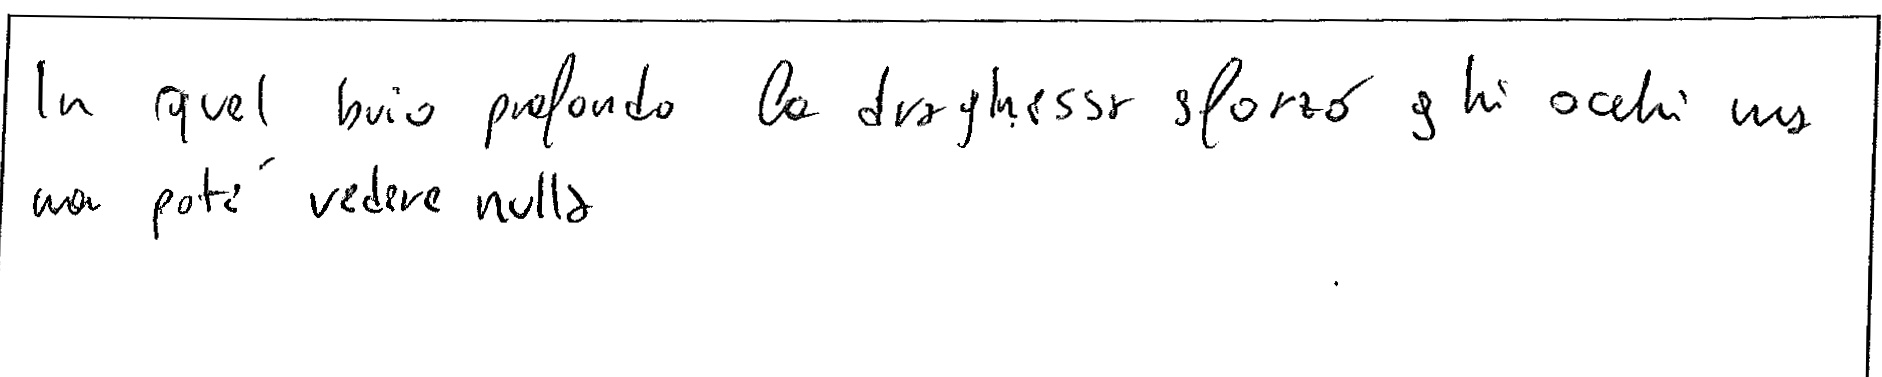 In quel buio profondo la draghessa sforzó ghi occhi ma
non poté vedere nulla